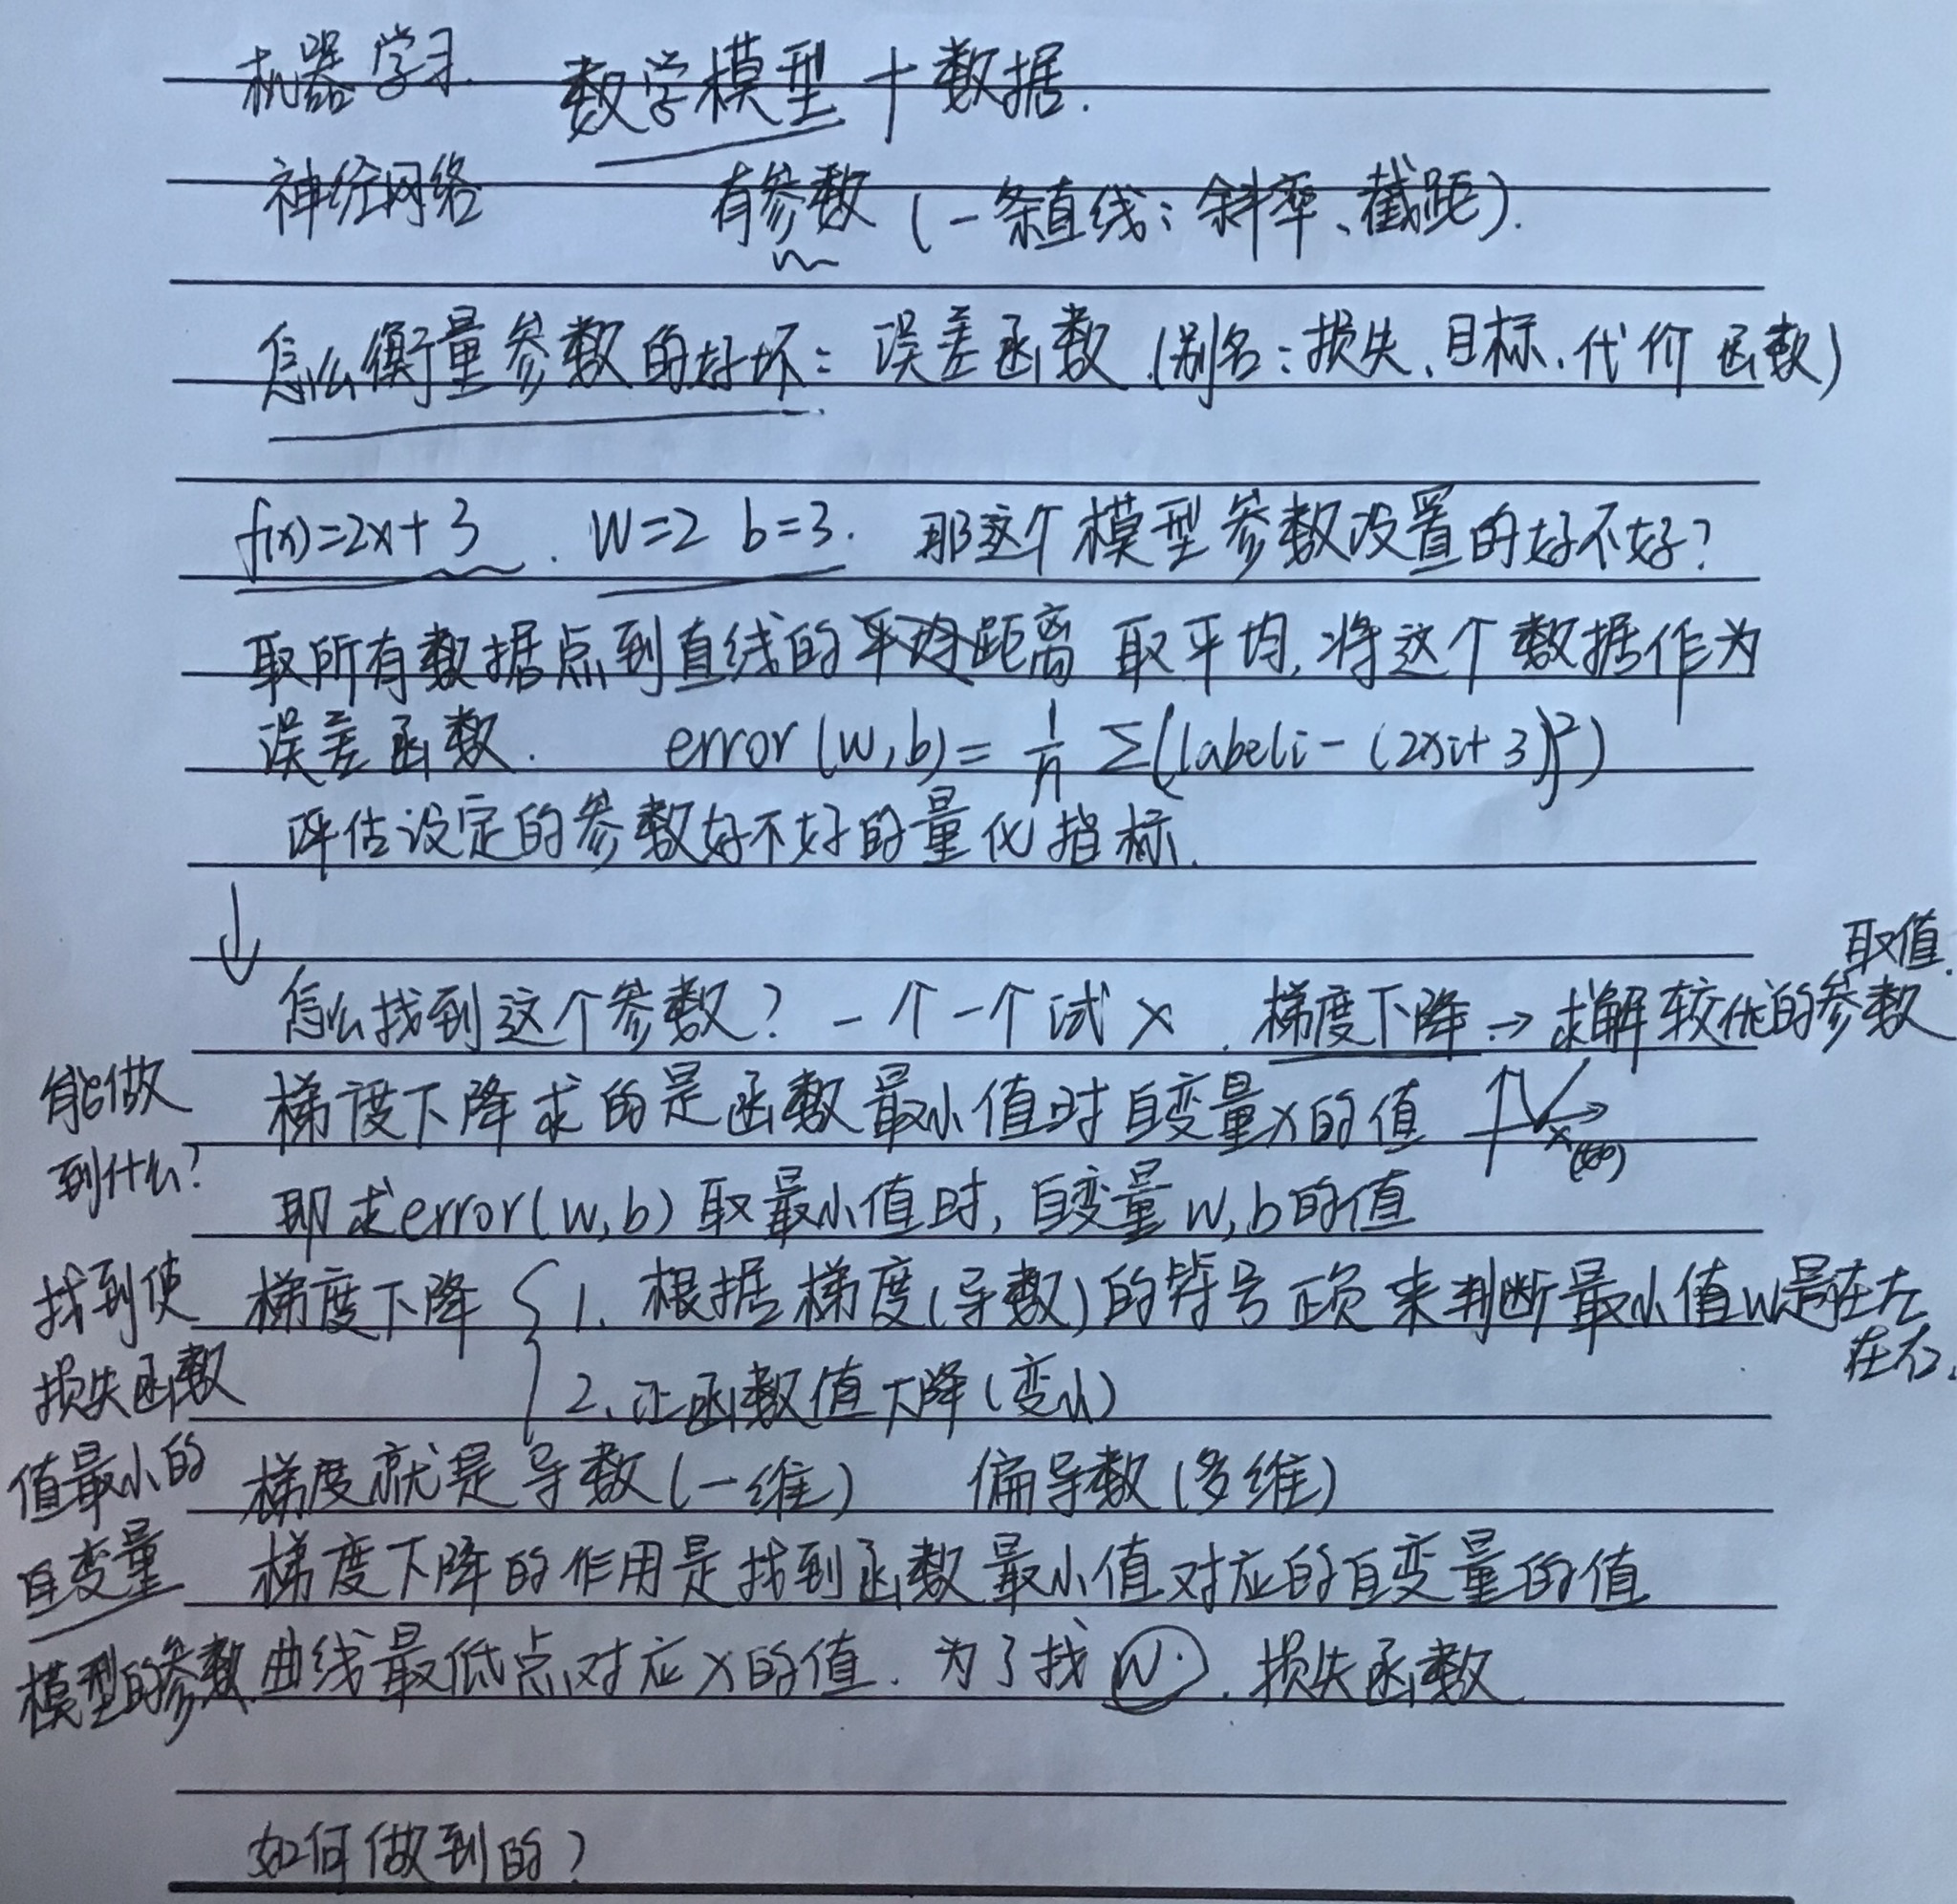 机器学习 数学模型+数据.
神经网络 有参数(一条直线:斜率、截距).
怎么衡量参数的好坏: 误差函数(别名:损失、目标、代价函数)
f(x)=2x+3. W=2 b=3. 那这个模型参数设置的好不好?
取所有数据点到直线的距离 取平均,将这个数据作为
误差函数. error(w,b)= 1/n Σ(labeli-(2xi+3)²)
评估设定的参数好不好的量化指标.
↓
取值.
怎么找到这个参数? 一个一个试 ×. 梯度下降→求解较优的参数
梯度下降求的是函数最小值时自变量x的值
x
即求error(w,b)取最小值时,自变量w,b的值
梯度下降 { 1. 根据梯度(导数)的符号正负来判断最小值w是在左
在右.
2. 让函数值下降(变小)
梯度就是导数(一维) 偏导数(多维)
梯度下降的作用是找到函数最小值对应的自变量的值
曲线最低点对应x的值. 为了找w. 损失函数
如何做到的?
能做
到什么?
找到使
损失函数
值最小的
自变量
模型的参数